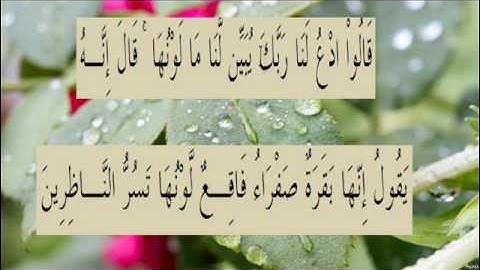 قَالُواْ ادْعُ لَنَا رَبَّكَ يُبَيِّن لَّنَا مَا لَوْنُهَا ۚ قَالَ إِنَّـــهُ
يَقُولُ إِنَّهَا بَقَرَةٌ صَفْرَاءُ فَاقِـــعٌ لَّوْنُهَا تَسُرُّ النَّـــاظِرِينَ